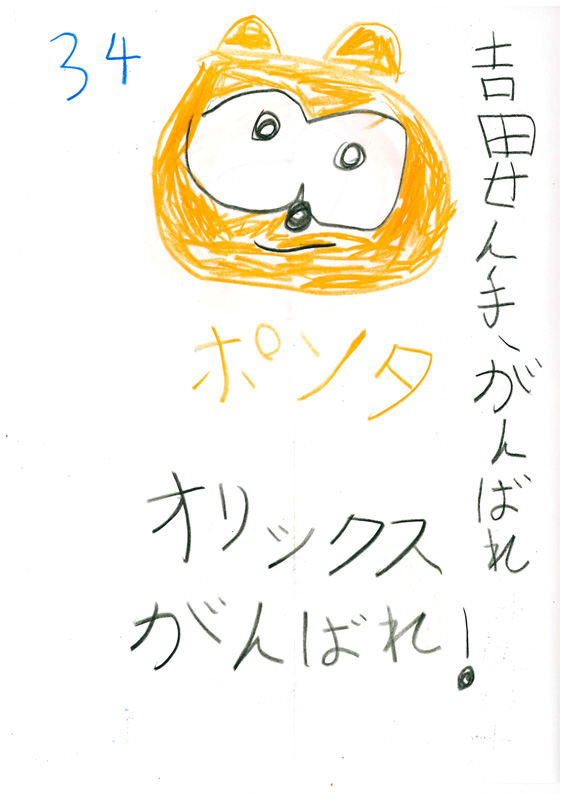 34
吉田せん手、がんばれ
ポンタ
オリックス
がんばれ!